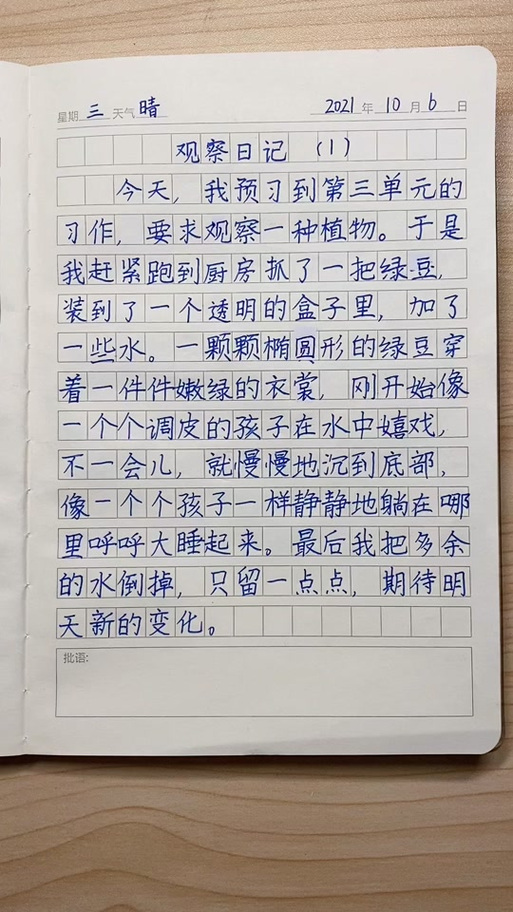 星期 三 天气 晴 2021 年 10 月 6 日
观察日记 (1)
今天，我预习到第三单元的
习作，要求观察一种植物。于是
我赶紧跑到厨房抓了一把绿豆，
装到了一个透明的盒子里，加了
一些水。一颗颗椭圆形的绿豆穿
着一件件嫩绿的衣裳，刚开始像
一个个调皮的孩子在水中嬉戏，
不一会儿，就慢慢地沉到底部，
像一个个孩子一样静静地躺在哪
里呼呼大睡起来。最后我把多余
的水倒掉，只留一点点，期待明
天新的变化。
批语: